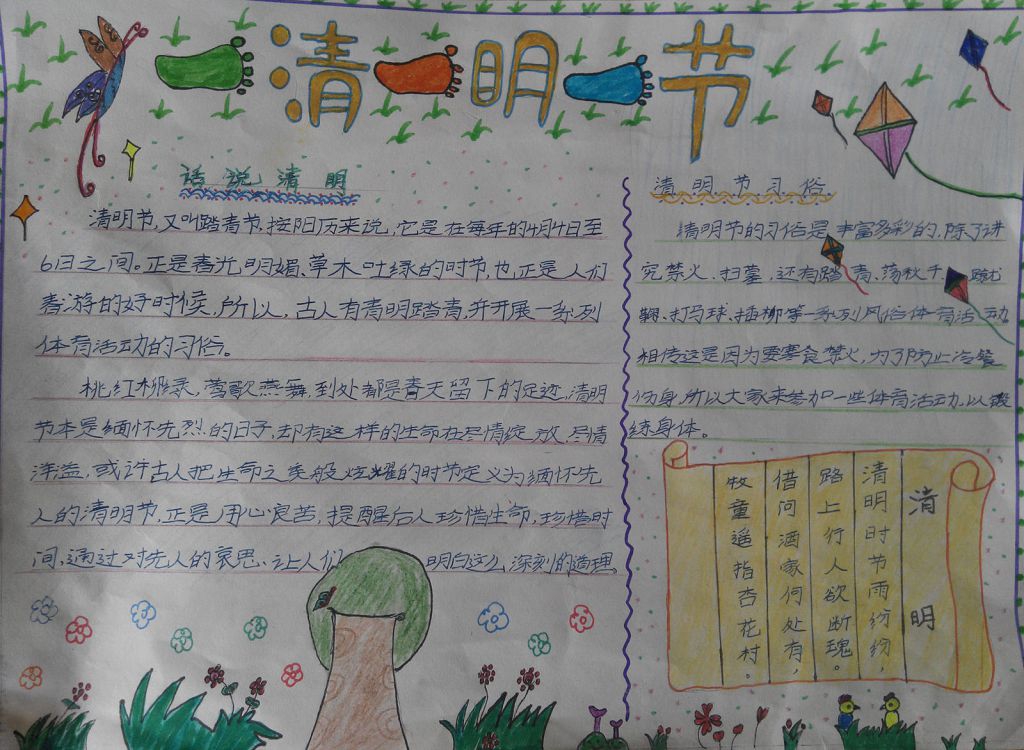 清明节
话说清明
清明节,又叫踏青节,按阳历来说,它是在每年的4月4日至
6日之间。正是春光明媚、草木叶绿的时节,也正是人们
春游的好时候,所以,古人有青明踏青,并开展一系列
体育活动的习俗。
桃红柳绿,莺歌燕舞,到处都是春天留下的足迹,清明
节本是缅怀先烈的日子,却有这样的生命在尽情绽放,尽情
洋溢,或许古人把生命之美般炫耀的时节定义为缅怀先
人的清明节,正是用心良苦,提醒后人珍惜生命,珍惜时
间,通过对先人的哀思、让人们明白这么深刻的道理。
清明节习俗
清明节的习俗是丰富多彩的,除了讲
究禁火、扫墓,还有踏青、荡秋千、蹴
鞠、打马球、插柳等一系列风俗体育活动
相传这是因为要寒食禁火,为了防止冷餐
伤身,所以大家来参加一些体育活动,以锻
炼身体。
清明
清明时节雨纷纷,
路上行人欲断魂。
借问酒家何处有,
牧童遥指杏花村。